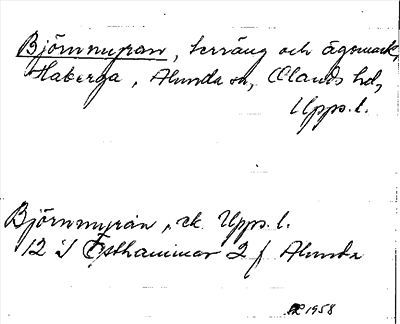 Björnmyran, terräng och ägomark,
Haberga, Alunda sn, Olands hd,
Upps. l.
Björnmyran, ek. Upps. l.
12 i Östhammar 2 f Alunda
1958